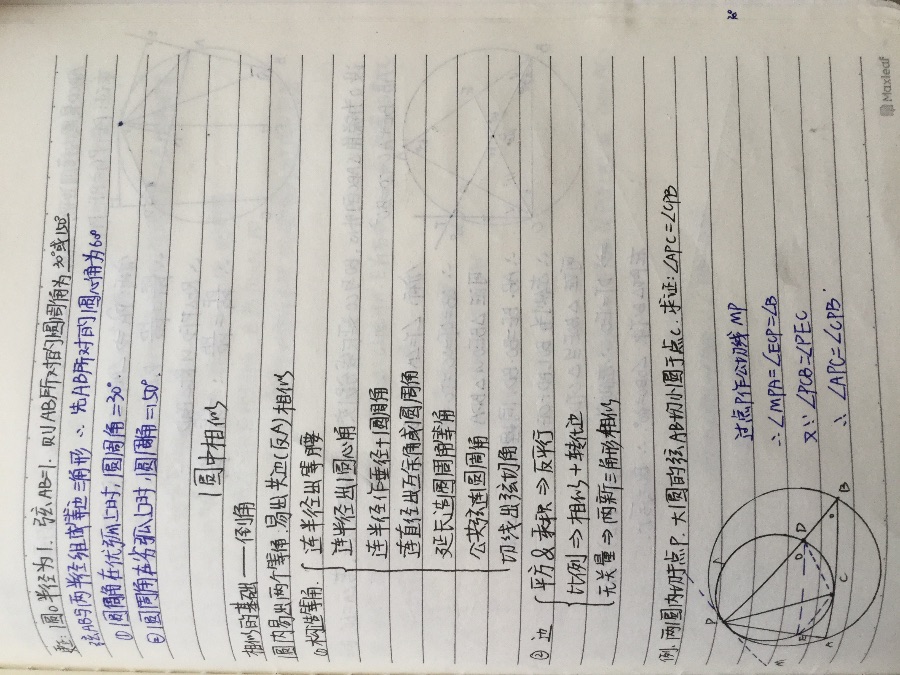 题:圆O半径为1.弦AB=1.则AB所对的圆周角为30°或150°
弦AB与两半径组成等边三角形 ∴先AB所对的圆心角为60°
① 圆周角在优弧上时,圆周角=30°.
② 圆周角在劣弧上时,圆周角=150°.
圆中相似
相似的基础——倒角
圆内易出两个等角 易出夹边(反A)相似
(1)构造等角.
连半径出等腰
连半径出圆心角
连半径作垂径+圆周角
连直径出互余角或圆周角
延长造圆周角等角
公共弦连圆周角
切线出弦切角
② 边
平方&乘积⇒反平行
比例⇒相似+转化边
无关量⇒两新三角形相似
例.两圆内切于点P.大圆的弦AB切小圆于点C.求证:∠APC=∠CPB
过点P作公切线MP
∴∠MPA=∠ECP=∠B
又∵∠PCB=∠PEC
∴∠APC=∠CPB.
P
M
E
A
C
D
B
O
30°
Maxleaf